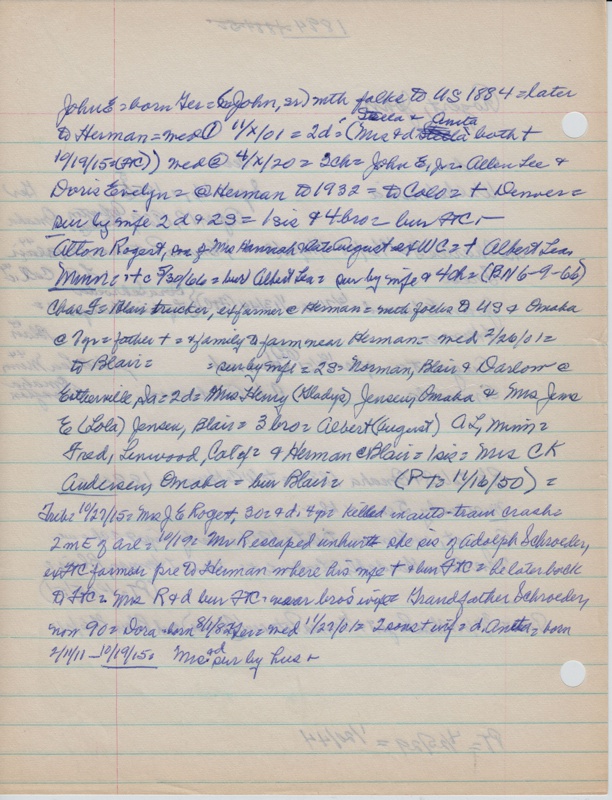 John E = born Ger = (to John, sr) with folks to US 1884 = later
Stella & Anita
to Herman = wed ① 11/x/01 = 2d = (Mrs & d both +
10/19/15 = (FtC)) wed @ 4/x/20 = 3ch = John E, Jr = Allen Lee &
Doris Evelyn = @ Herman to 1932 = to Colo = + Denver =
sur by wife 2d & 2S = 1 sis & 4 bro = bur FtC +
Alton Rogert, son of Mrs Hannah & late August = + Albert Lea
Minn = + 5/30/66 = bur Albert Lea = sur by wife & 4ch = (BN 6-9-66)
Chas F = Blair trucker, ex farmer @ Herman = with folks to US & Omaha
@ 7yr = father + = & family to farm near Herman = wed 2/26/01 =
to Blair = = sur by wife = 2S = Norman, Blair & Darlow @
Estherville, Ia = 2d = Mrs Henry (Gladys) Jensen, Omaha & Mrs Jens
E (Lola) Jensen, Blair = 3 bro = Albert (August) A L, Minn =
Fred, Linwood, Calif = & Herman @ Blair = 1 sis = Mrs C K
Andersen, Omaha = bur Blair = (PT = 11/16/50) =
Trib = 10/27/15 = Mrs J E Rogert, 30 & d, 4 yr killed in auto-train crash =
2 m E of = 10/19 = Mr R escaped unhurt = she sis of Adolph Schroeder,
FtC farmer pre to Herman where his wife + & bur FtC = he later back
to FtC = Mrs R & d bur FtC near bro's wife = Grandfather Schroeder,
now 90 = Dora born Ger = wed 11/27/01 = 2 sons & wif = d, Anita = born
2/11/11 - 10/19/15 = Mrs sur by hus +